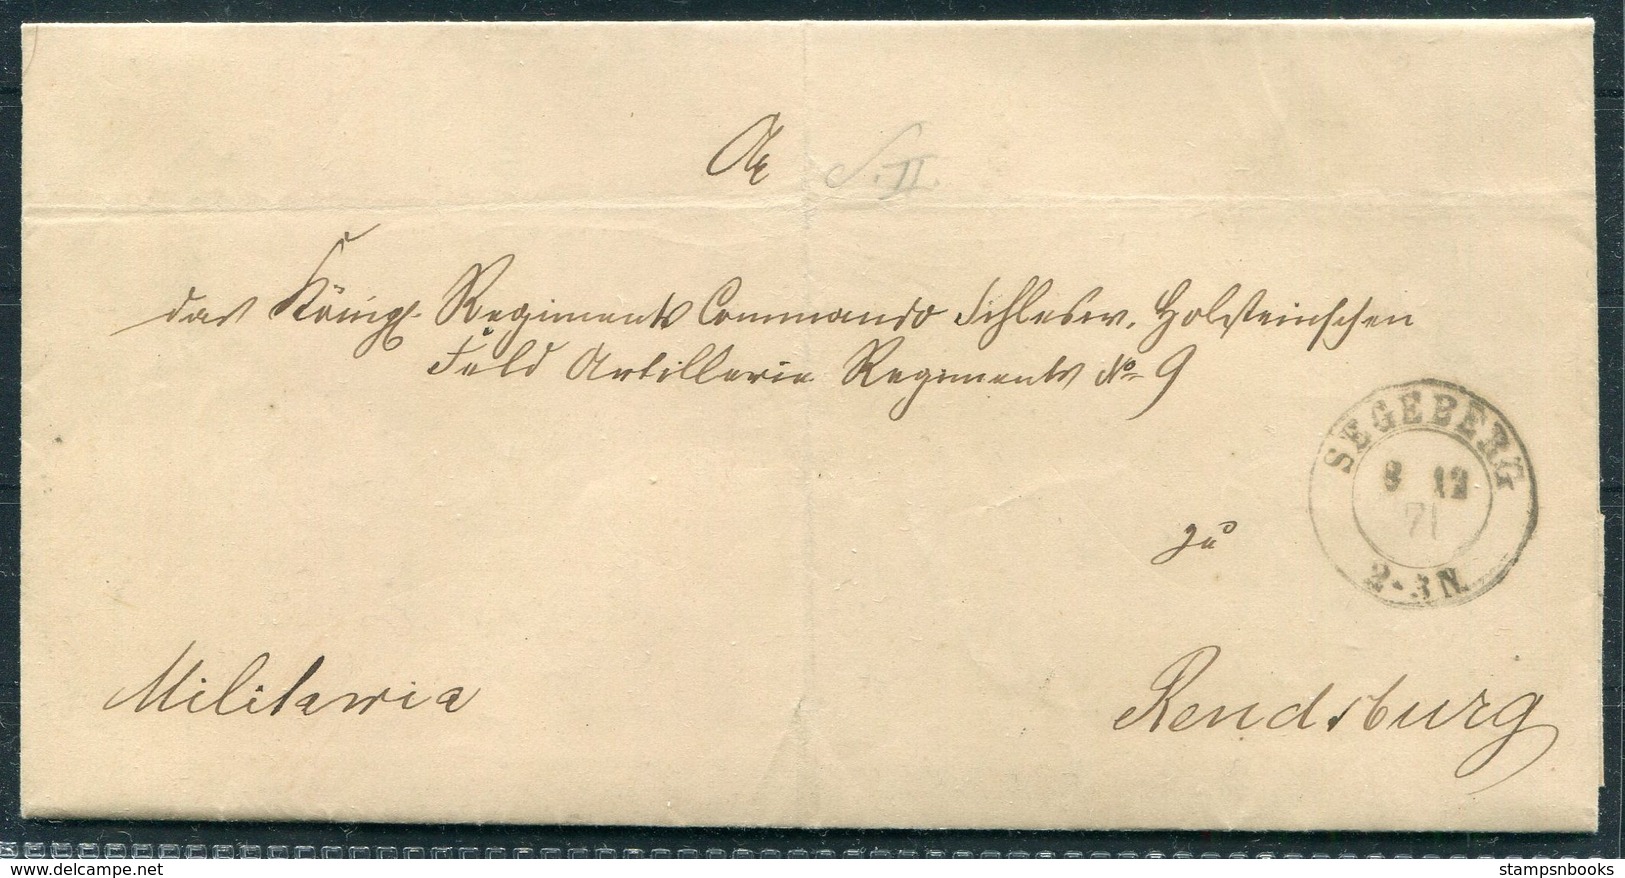 An
S. II.
das Königl. Regiments Commando Schlesw. Holsteinschen
Feld Artillerie Regiments No 9
SEGEBERG
8 12
71
2-3 N.
zu
Militaria
Rendsburg
delcampe.net
stampsnbooks